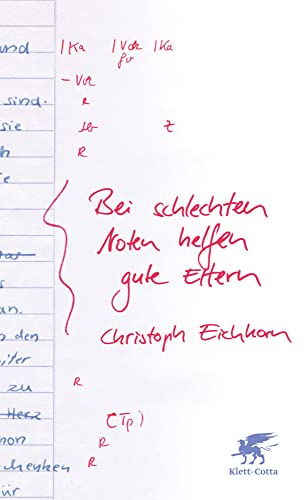 und |Ka |Vok |Ka
gv
– Vok
sind. R
sie t z
h R
e
Bei schlechten
Noten helfen
gute Eltern
an.
Christoph Eichhorn
den
iter
zu R
Herz (Tp)
hon R
chenken R
ür
Klett-Cotta